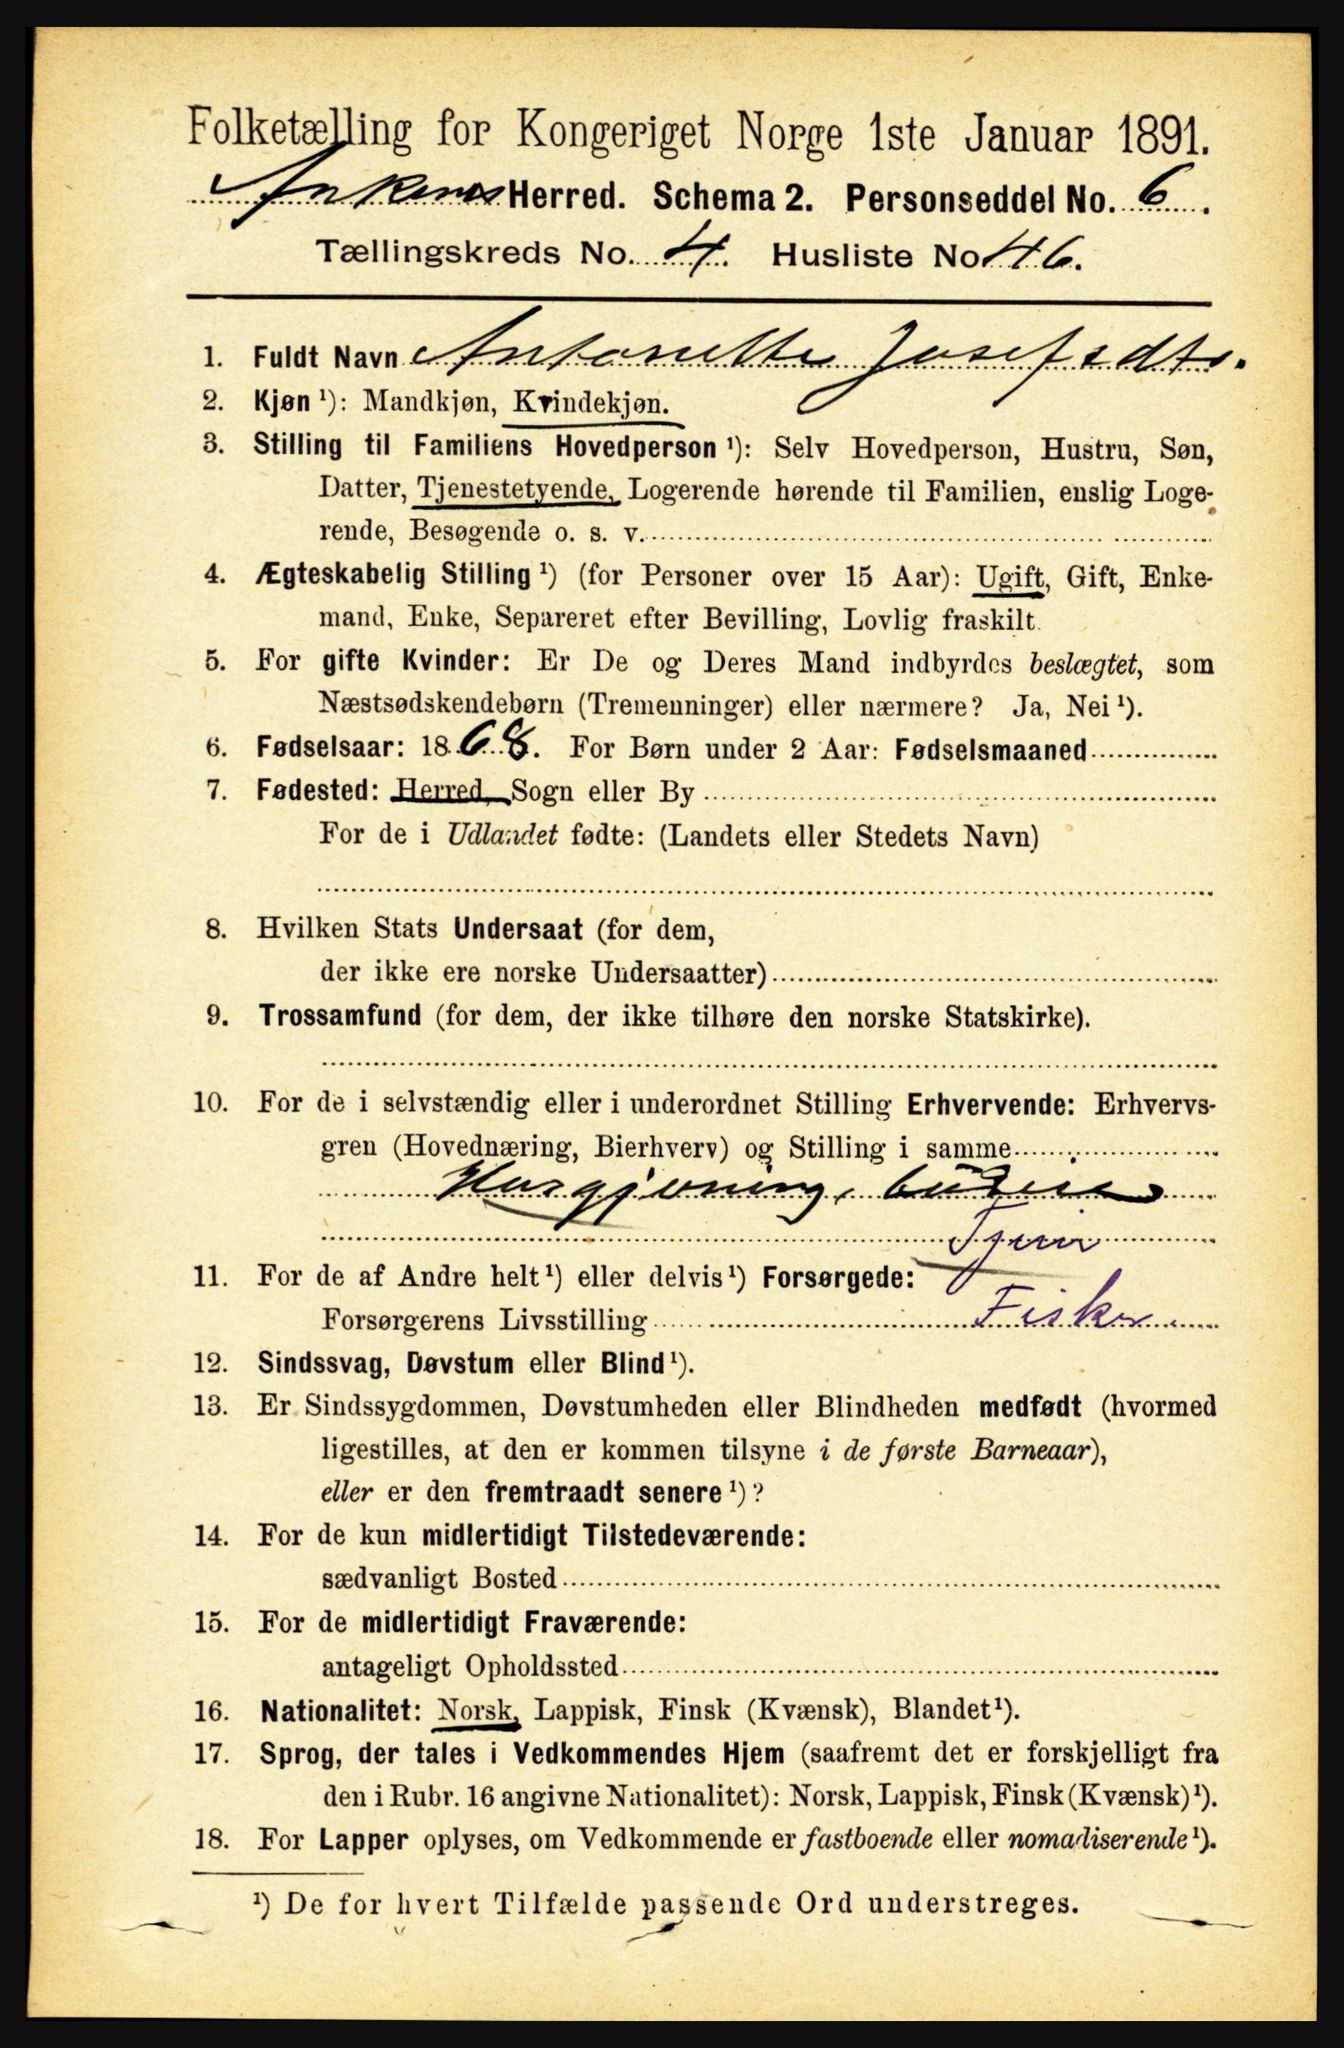 Folketælling for Kongeriget Norge 1ste Januar 1891.
Ankenes Herred. Schema 2. Personseddel No. 6.
Tællingskreds No. 4. Husliste No 46.
1. Fuldt Navn Antonette Josefsdtr.
2. Kjøn ¹): Mandkjøn, Kvindekjøn.
3. Stilling til Familiens Hovedperson ¹): Selv Hovedperson, Hustru, Søn,
Datter, Tjenestetyende, Logerende hørende til Familien, enslig Loge-
rende, Besøgende o. s. v.
4. Ægteskabelig Stilling ¹) (for Personer over 15 Aar): Ugift, Gift, Enke-
mand, Enke, Separeret efter Bevilling, Lovlig fraskilt.
5. For gifte Kvinder: Er De og Deres Mand indbyrdes beslægtet, som
Næstsødskendebørn (Tremenninger) eller nærmere? Ja, Nei ¹).
6. Fødselsaar: 1868. For Børn under 2 Aar: Fødselsmaaned
7. Fødested: Herred, Sogn eller By
For de i Udlandet fødte: (Landets eller Stedets Navn)
8. Hvilken Stats Undersaat (for dem,
der ikke ere norske Undersaatter)
9. Trossamfund (for dem, der ikke tilhøre den norske Statskirke).
10. For de i selvstændig eller i underordnet Stilling Erhvervende: Erhvervs-
gren (Hovednæring, Bierhverv) og Stilling i samme
Husgjerning,
11. For de af Andre helt ¹) eller delvis ¹) Forsørgede:
Forsørgerens Livsstilling Fisker.
12. Sindssvag, Døvstum eller Blind ¹).
13. Er Sindssygdommen, Døvstumheden eller Blindheden medfødt (hvormed
ligestilles, at den er kommen tilsyne i de første Barneaar),
eller er den fremtraadt senere ¹)?
14. For de kun midlertidigt Tilstedeværende:
sædvanligt Bosted
15. For de midlertidigt Fraværende:
antageligt Opholdssted
16. Nationalitet: Norsk, Lappisk, Finsk (Kvænsk), Blandet ¹).
17. Sprog, der tales i Vedkommendes Hjem (saafremt det er forskjelligt fra
den i Rubr. 16 angivne Nationalitet): Norsk, Lappisk, Finsk (Kvænsk) ¹).
18. For Lapper oplyses, om Vedkommende er fastboende eller nomadiserende ¹).
¹) De for hvert Tilfælde passende Ord understreges.